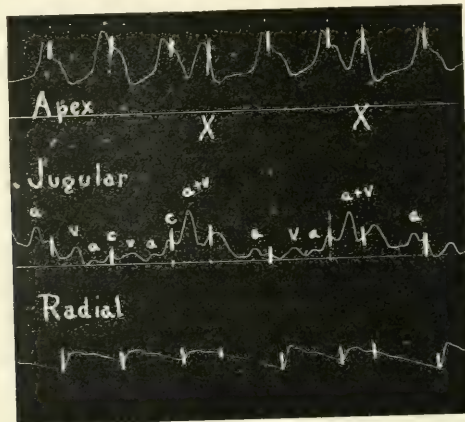 Apex
X X
Jugular
a+v a+v
a v a c v a c a v a a
Radial